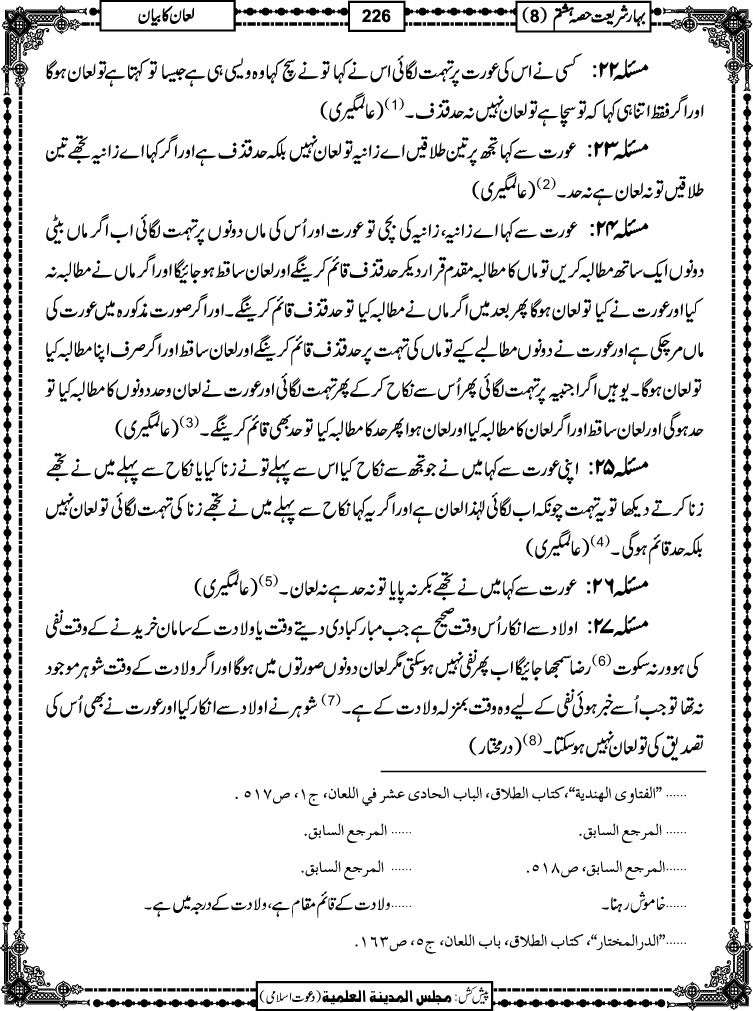 بہار شریعت حصہ ہشتم (8)
226
لعان کا بیان
مسئلہ ۲۲: کسی نے اس کی عورت پر تہمت لگائی اس نے کہا تو نے سچ کہا وہ ویسی ہی ہے جیسا تو کہتا ہے تو لعان ہوگا
اور اگر فقط اتنا ہی کہا کہ تو سچا ہے تو لعان نہیں نہ حد قذف۔(1) (عالمگیری)
مسئلہ ۲۳: عورت سے کہا تجھ پر تین طلاقیں اے زانیہ تو لعان نہیں بلکہ حد قذف ہے اور اگر کہا اے زانیہ تجھے تین
طلاقیں تو نہ لعان ہے نہ حد۔(2) (عالمگیری)
مسئلہ ۲۴: عورت سے کہا اے زانیہ، زانیہ کی بچی تو عورت اور اُس کی ماں دونوں پر تہمت لگائی اب اگر ماں بیٹی
دونوں ایک ساتھ مطالبہ کریں تو ماں کا مطالبہ مقدم قرار دیکر حد قذف قائم کرینگے اور لعان ساقط ہو جائیگا اور اگر ماں نے مطالبہ نہ
کیا اور عورت نے کیا تو لعان ہوگا پھر بعد میں اگر ماں نے مطالبہ کیا تو حد قذف قائم کرینگے۔ اور اگر صورت مذکورہ میں عورت کی
ماں مر چکی ہے اور عورت نے دونوں مطالبے کیے تو ماں کی تہمت پر حد قذف قائم کرینگے اور لعان ساقط اور اگر صرف اپنا مطالبہ کیا
تو لعان ہوگا۔ یوہیں اگر اجنبیہ پر تہمت لگائی پھر اُس سے نکاح کر کے پھر تہمت لگائی اور عورت نے لعان و حد دونوں کا مطالبہ کیا تو
حد ہوگی اور لعان ساقط اور اگر لعان کا مطالبہ کیا اور لعان ہوا پھر حد کا مطالبہ کیا تو حد بھی قائم کرینگے۔(3) (عالمگیری)
مسئلہ ۲۵: اپنی عورت سے کہا میں نے جو تجھ سے نکاح کیا اس سے پہلے تو نے زنا کیا یا نکاح سے پہلے میں نے تجھے
زنا کرتے دیکھا تو یہ تہمت چونکہ اب لگائی لہٰذا لعان ہے اور اگر یہ کہا نکاح سے پہلے میں نے تجھے زنا کی تہمت لگائی تو لعان نہیں
بلکہ حد قائم ہوگی۔(4) (عالمگیری)
مسئلہ ۲۶: عورت سے کہا میں نے تجھے بکر نہ پایا تو نہ حد ہے نہ لعان۔(5) (عالمگیری)
مسئلہ ۲۷: اولاد سے انکار اُس وقت صحیح ہے جب مبارکبادی دیتے وقت یا ولادت کے سامان خریدنے کے وقت نفی
کی ہو ورنہ سکوت(6) رضا سمجھا جائیگا اب پھر نفی نہیں ہوسکتی مگر لعان دونوں صورتوں میں ہوگا اور اگر ولادت کے وقت شوہر موجود
نہ تھا تو جب اُسے خبر ہوئی نفی کے لیے وہ وقت بمنزلہ ولادت کے ہے۔(7) شوہر نے اولاد سے انکار کیا اور عورت نے بھی اُس کی
تصدیق کی تو لعان نہیں ہوسکتا۔(8) (درمختار)
...... "الفتاوی الهندیة"، کتاب الطلاق، الباب الحادی عشر في اللعان، ج۱، ص۵۱۷ .
...... المرجع السابق. ...... المرجع السابق.
......المرجع السابق، ص۵۱۸. ...... المرجع السابق.
......خاموش رہنا۔ ......ولادت کے قائم مقام ہے، ولادت کے درجہ میں ہے۔
......"الدرالمختار"، کتاب الطلاق، باب اللعان، ج۵، ص۱۶۳.
پیش کش: مجلس المدینة العلمیة (دعوت اسلامی)